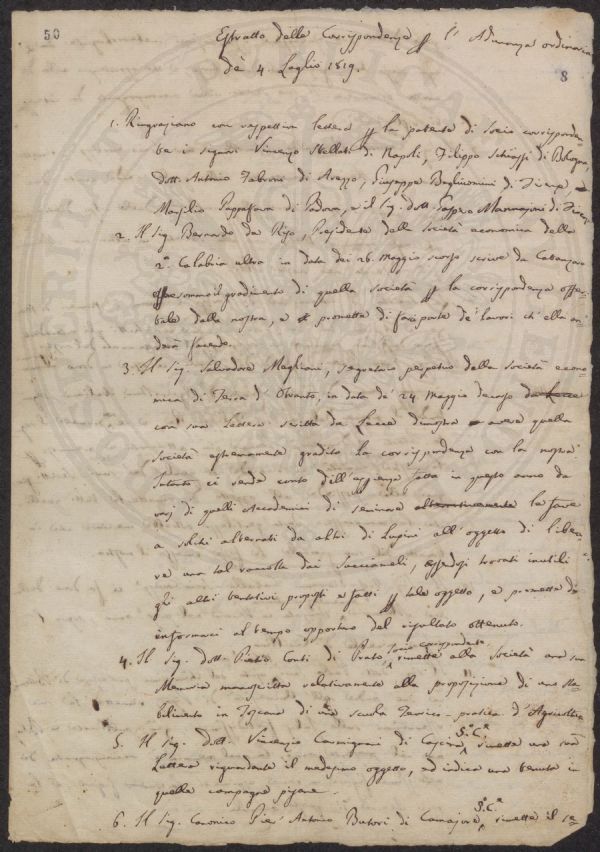 50
Estratto della Corrispondenza p l'Adunanza ordinaria
de' 4. Luglio 1819.
8
1. Ringraziano con rispettiva lettera p la patente di Socio corrisponden-
te i signori Vincenzo Stellati di Napoli, Filippo Schiassi di Bologna,
dott. Antonio Fabroni di Arezzo, Giuseppe di Firenze,
Marsilio Pappafava di Padova, e il Sig. dott. Gaspero Mannajoni di Firenze
2. Il Sig. Bernardo da Riso, Presidente della Società economica della
2.a Calabria ultra in data dei 26. Maggio scorso scrive da Catanzaro
sommo il gradimento di quella Società p la corrispondenza offer-
tale dalla nostra, e promette di farci parte de' lavori ch'ella an-
derà facendo.
3. Il Sig. Salvadore Magliani, segretario perpetuo della Società econo-
mica di Terra d'Otranto, in data de' 24 Maggio decorso da Lecce
con sua Lettera scritta da Lecce dimostra avere quella
Società estremamente gradito la corrispondenza con la nostra.
Intanto ci rende conto dell'esperienza fatta in questo anno da
varj di quelli Accademici di seminare alternativamente le fave
a solchi alternati da altri di Lupini all'oggetto di libera-
re una tal raccolta dai Succiameli, essendosi trovati inutili
gli altri tentativi proposti e fatti p tale oggetto, e promette di
informarci al tempo opportuno del risultato ottenuto.
4. Il Sig. dott. Pietro Conti di Prato socio corrispondente rimette alla Società una sua
Memoria manoscritta relativamente alla proposizione di uno sta-
bilimento in Toscana di una scuola Teorico-pratica d'Agricoltura
5. Il Sig. dott. Vincenzio Carmignani di Cascina S.o C.e rimette una sua
Lettera riguardante il medesimo oggetto, ed indica una tenuta in
quella campagna pisana.
6. Il Sig. Canonico Pier' Antonio Butori di Camajore S.o C.e, rimette il se-